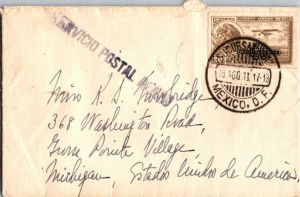 SERVICIO POSTAL
MEXICO, D.F.
Miss K. S. Trowbridge
368 Washington Road,
Grosse Pointe Village,
Michigan, Estados Unidos de America